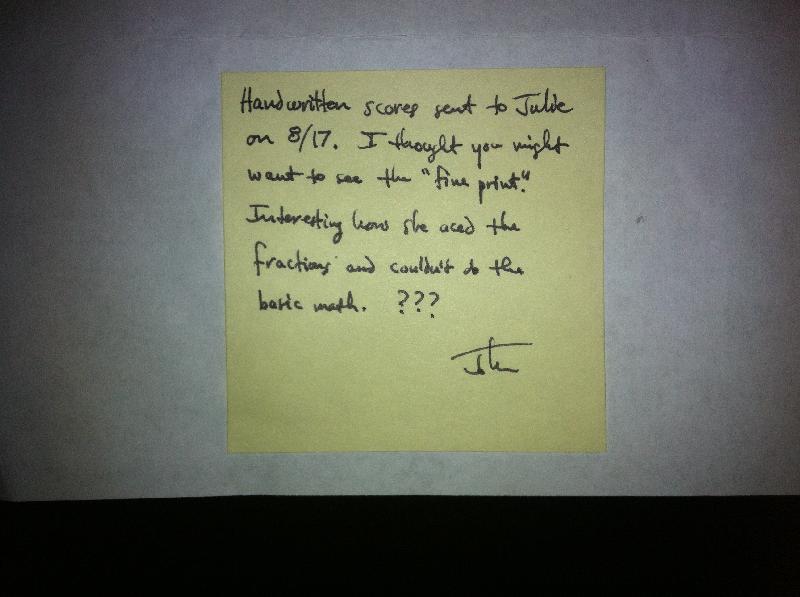 Handwritten scores sent to Julie
on 8/17. I thought you might
want to see the "fine print."
Interesting how she aced the
fractions and couldn't do the
basic math. ???
John